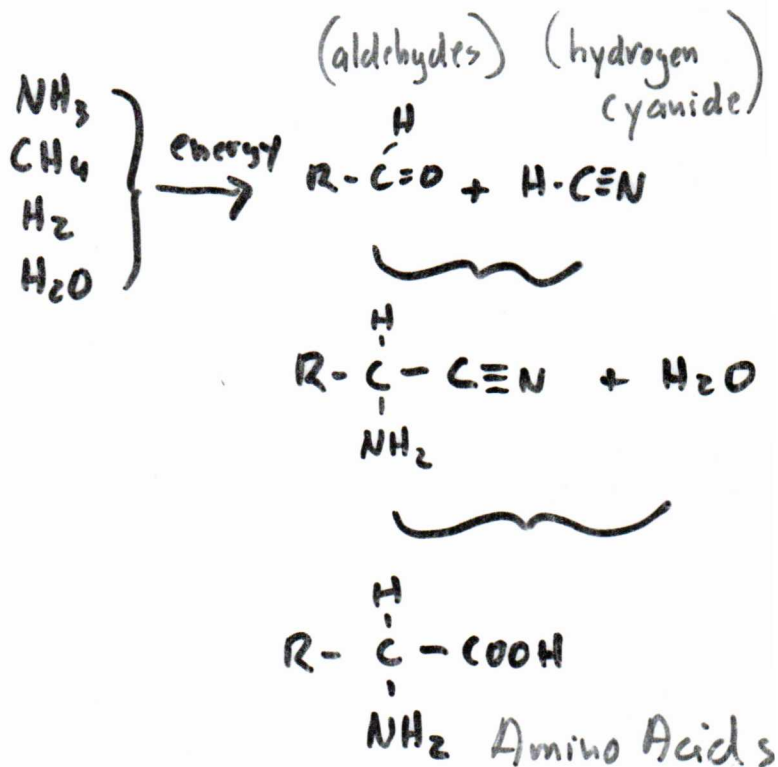 (aldehydes) (hydrogen cyanide)
NH₃
CH₄
H₂
H₂O
energy
H
R - C=O + H-C≡N
H
R - C - C≡N + H₂O
NH₂
H
R - C - COOH
NH₂ Amino Acids